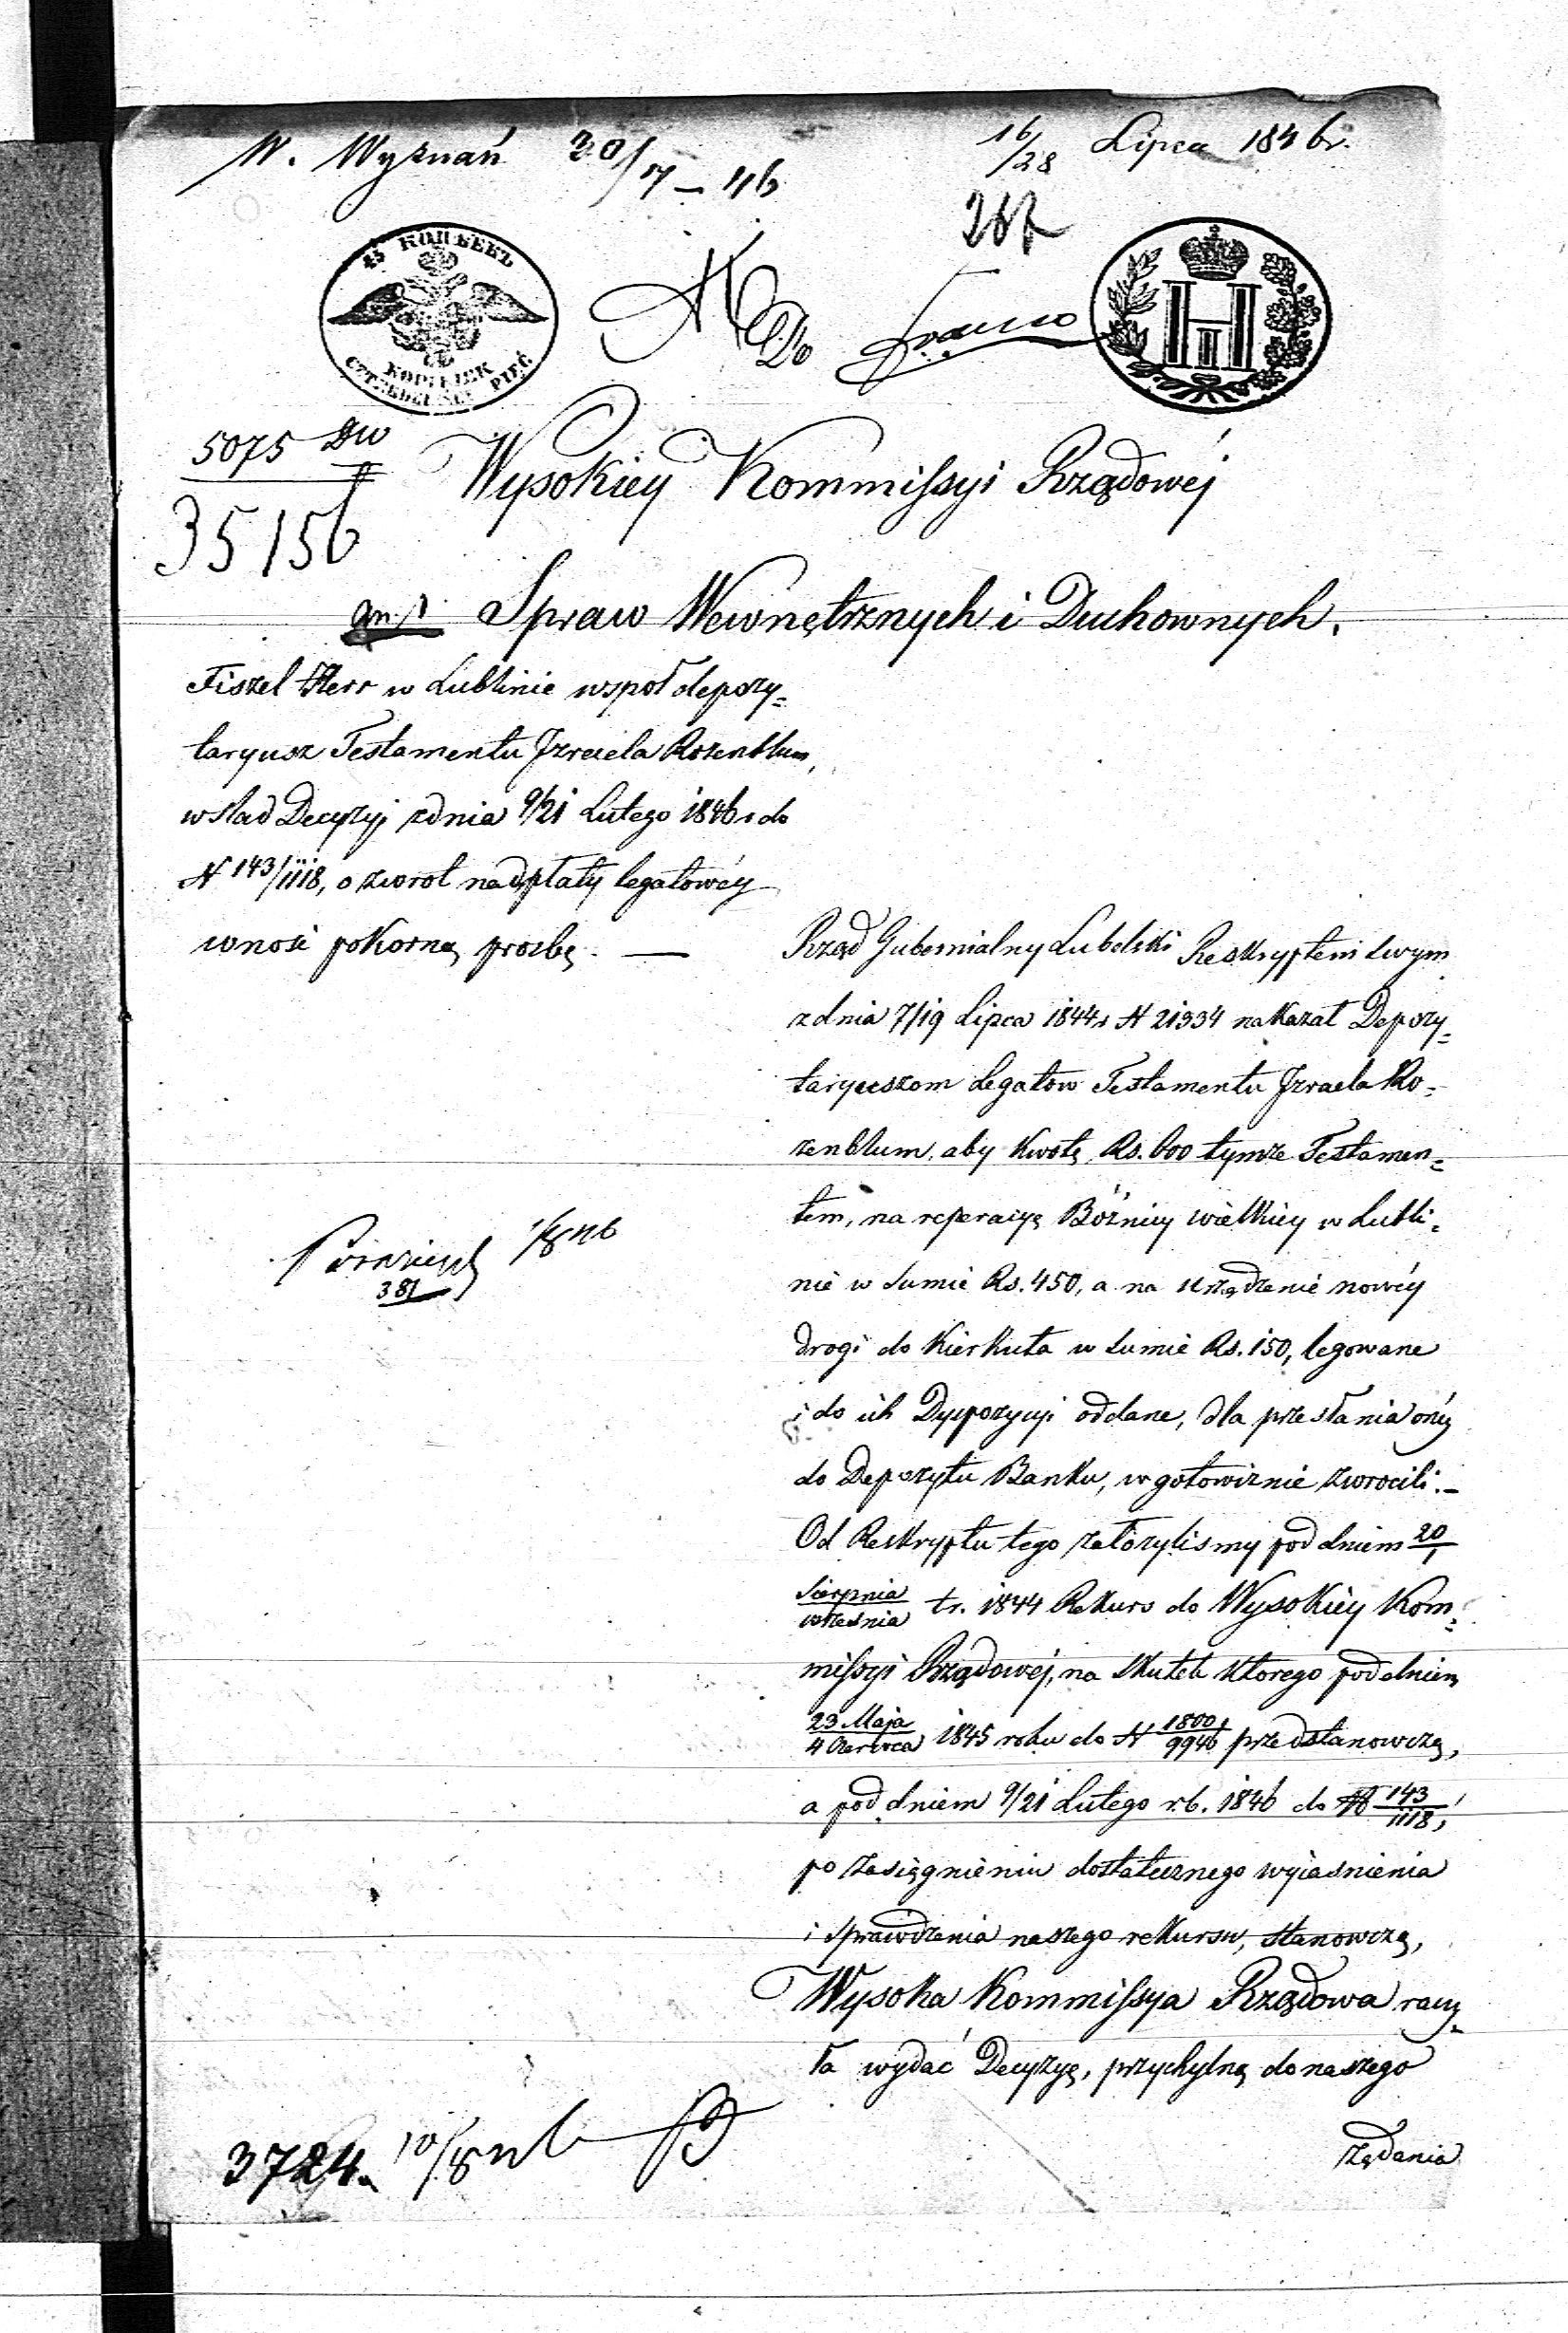 W. Wyznań 30/7 – 46
16/28 Lipca 1846 r.
287
45 КОПѢЕКЪ
KOPIEIEK
CZTERDZIEŚCI PIĘĆ
HI
Do
franco
5075 DW
35156
Wysokiey Kommissyi Rządowéj
Spraw Wewnętrznych i Duchownych.
Fiszel Herr w Lublinie wspoł depozy=
taryusz Testamentu Jzraela Rozenblum,
w slad Decyzyj z dnia 9/21 Lutego 1846 r do
N 143/1118, o zwrot nadpłaty legatowéy
wnosi pokorną prozbę. —
Rząd Gubernialny Lubelski Reskryptem swym
z dnia 7/19 Lipca 1844 r N 21334 nakazał Depozy=
taryuszom Legatow Testamentu Jzraela Ro=
zenblum, aby kwotę Rs. 600 tymze Testamen=
tem, na reperacyę Bóźnicy wielkiey w Lubli=
nie w summie Rs. 450, a na urządzenie nowéy
drogi do Kierkuta w summie Rs. 150, legowane
i do ich Dyspozycyi oddane, dla przesłania onéy
do Depozytu Banku, w gotowiznie zwrocili. –
Od Reskryptu tego załozylismy pod dniem 20/1
Sierpnia/Wrzesnia tr. 1844 Rekurs do Wysokiéy Kom=
missyi Rządowéj, na skutek ktorego pod dniem
23 Maja/4 Czerwca 1845 roku do N 1800/9946 przedstanowczą,
a pod dniem 9/21 Lutego r.b. 1846 do N 143/1118,
po zasiągnieniu dostatecznego wyiasnienia
i sprawdzenia naszego rekursu, stanowczą,
Wysoka Kommissya Rządowa raczy=
ła wydać Decyzyę, przychylną do naszego
rządania
1/8 46
381
3724. 10/8 46